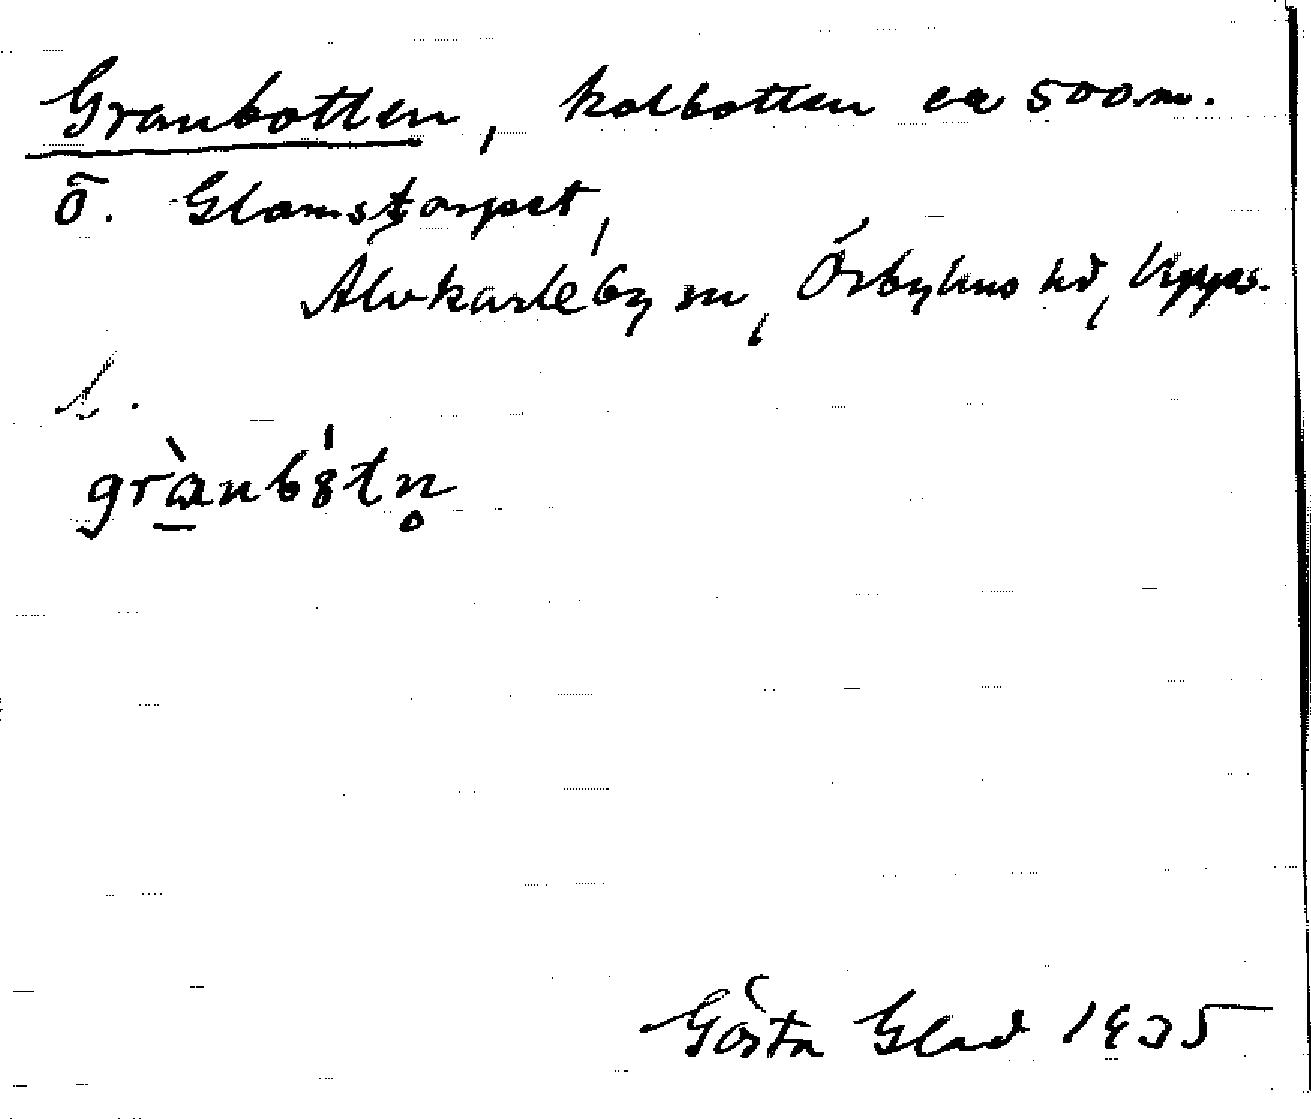 Granbotten, kolbotten ca 500 m.
ö. Glamstorpet,
Älvkarleby sn, Örbyhus hd, Upps.
l.
grànbȣ́tn̥
Gösta Glad 1935